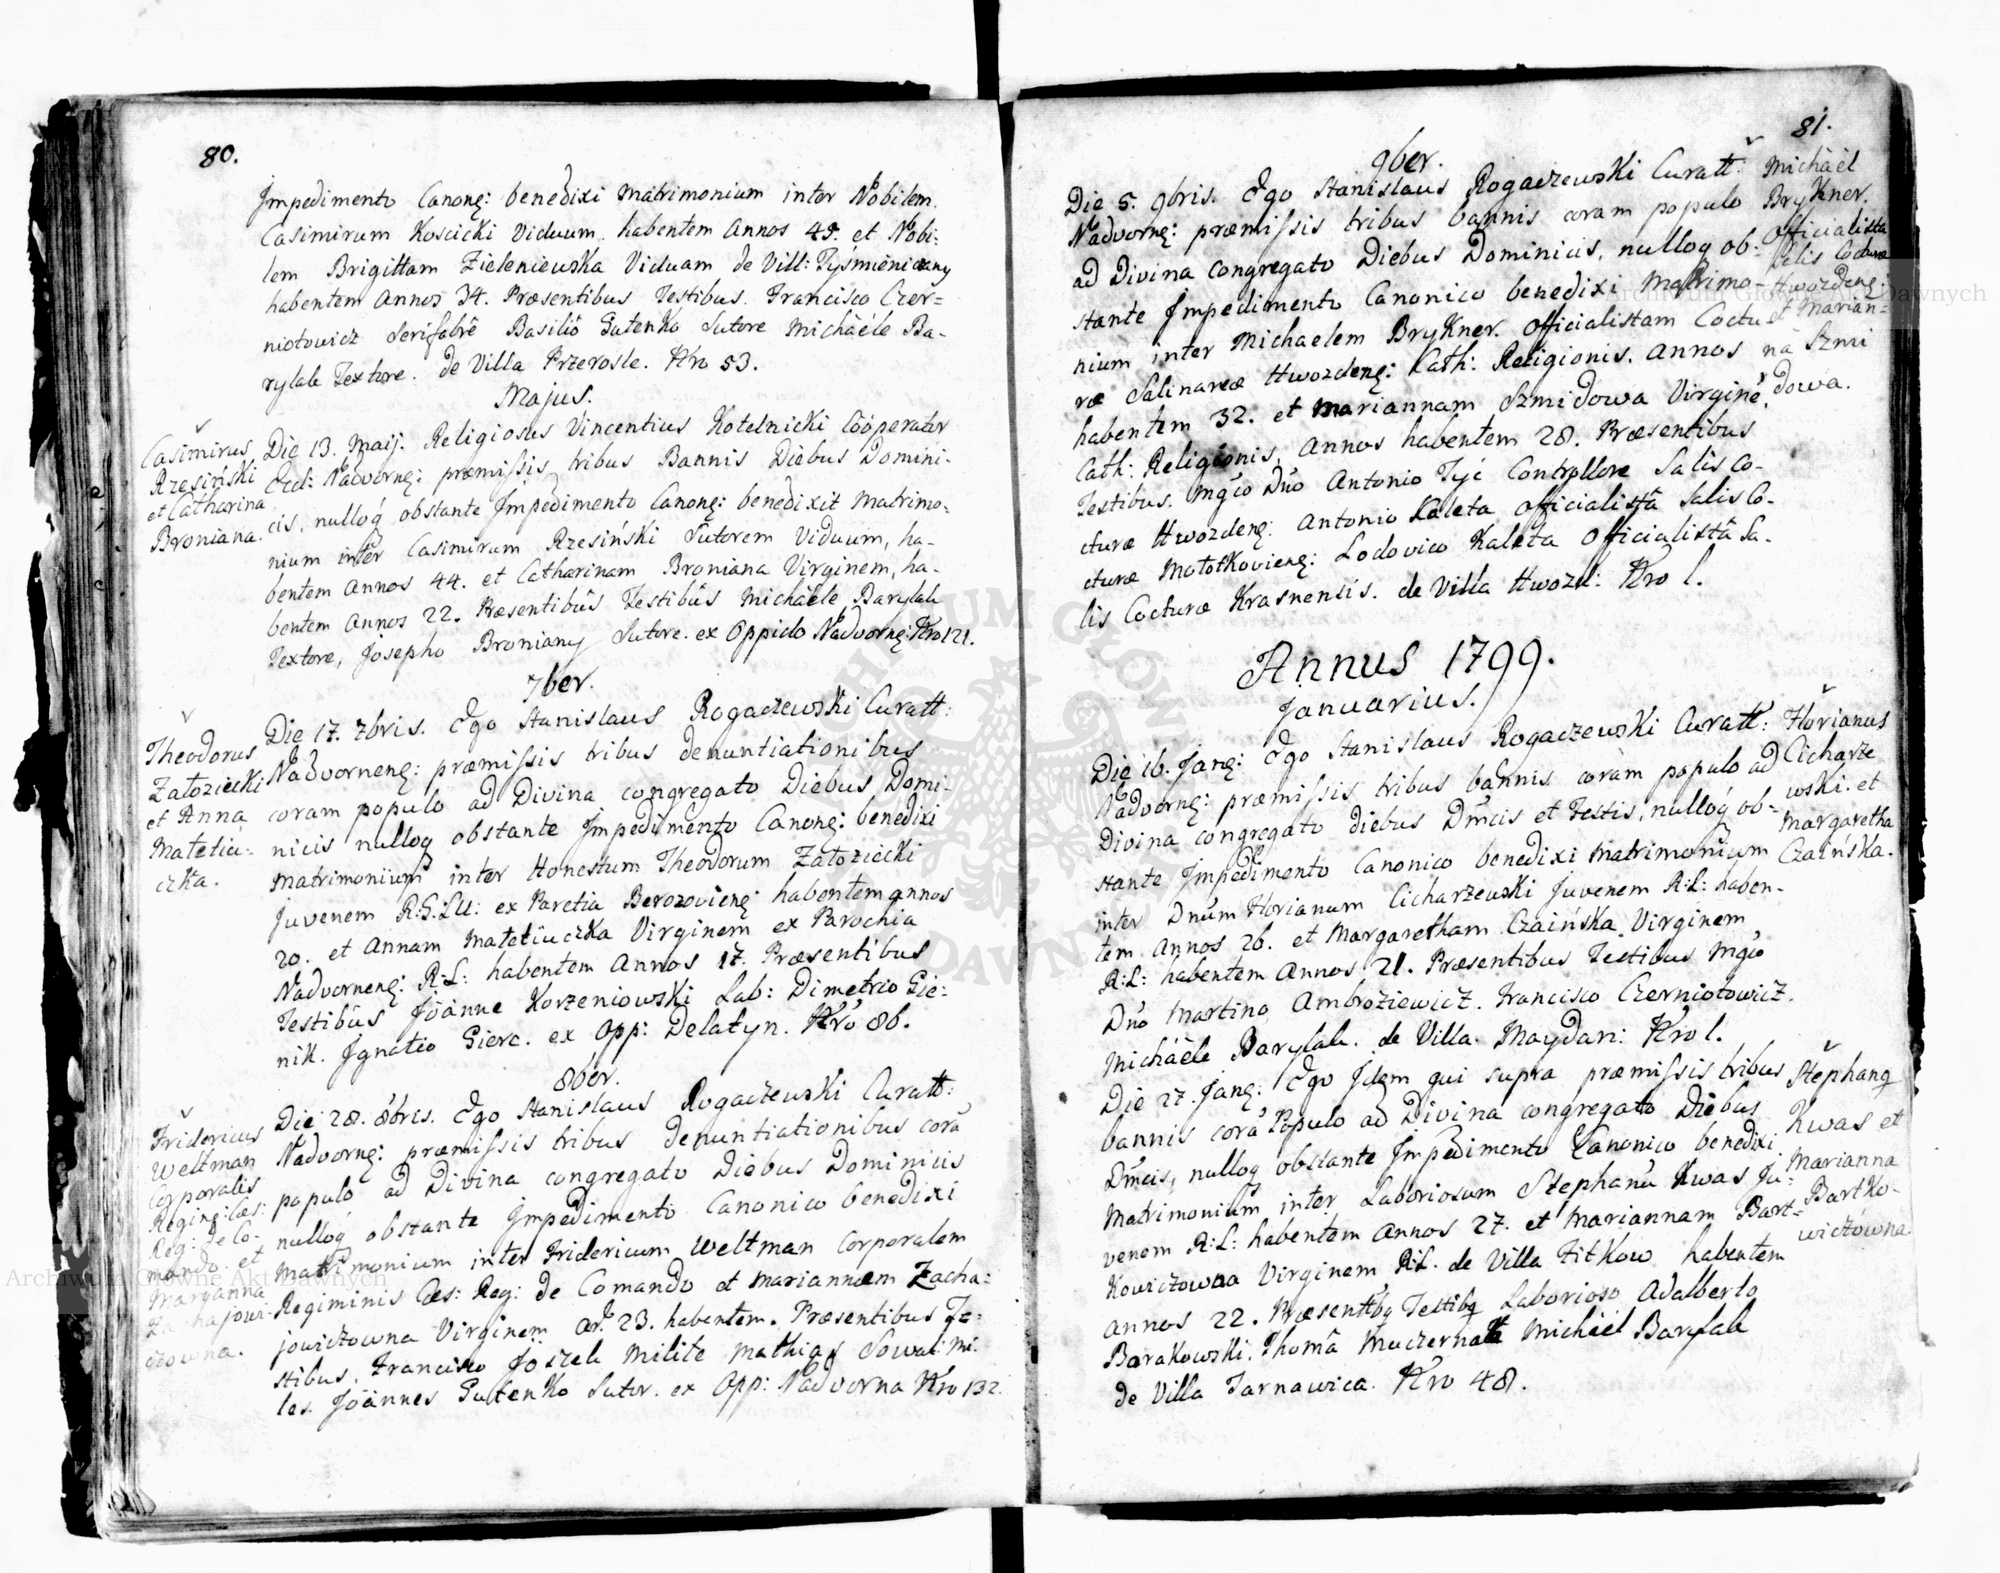 80.
Impedimento Canonę: benedixi matrimonium inter Nobilem
Casimirum Koscicki Viduum habentem Annos 49. et Nobi-
lem Brigittam Zieleniewska Viduam de Vill: Tysmieniczany
habentem Annos 34. Præsentibus Testibus. Francisco Czer=
niotowicz Serifabrê Basiliô Gutenko Sutore Michäéle Ba-
rylak Textore. de Villa Przerosle. Nro 53.
Majus.
Casimirus
Rzesiński
et Catharina
Broniana.
Die 13. Maij. Religiosus Vincentius Kotelnicki Cooperator
Eccl: Nadvornę: præmissis tribus Bannis Diebus Domini-
cis, nulloq obstante Impedimento Canonę: benedixit Matrimo-
nium inter Casimirum Rzesiński Sutorem Viduum, ha-
bentem Annos 44. et Catharinam Broniana Virginem, ha-
bentem Annos 22. Præsentibûs Testibûs Michäéle Barylak
Textore, Josepho Broniany Sutore. ex Oppido Nadvornę: Nro 121.
7ber.
Theodorus
Zatoziecki
et Anna
Mateliu-
czka.
Die 17. 7bris. Ego Stanislaus Rogaczewski Curatt:
Nadvornenę: præmissis tribus denuntiationibus
coram populo ad Divina congregato Diebus Domi-
nicis nulloq obstante Impedimento Canonę: benedixi
Matrimonium inter Honestum Theodorum Zatoziecki
juvenem R:G:LU: ex Paretia Berezovienę: habentem annos
20. et Annam Mateliuczka Virginem ex Parochia
Nadvornenę: R:L: habentem Annos 17. Præsentibus
Testibûs Jöanne Korzeniowski Lab: Dimetrio Gie-
nik. Ignatio Gierc. ex Opp: Delatyn. Nro 86.
8ber.
Fridericus
Weltman
Corporalis
Reginę: Cæs:
Reg: de Co-
mando et
Maryanna
Zachajowi-
czowna.
Die 28. 8bris. Ego Stanislaus Rogaczewski Curatt:
Nadvornę: præmissis tribus denuntiationibus corã
populo ad Divina congregato Diebus Dominicis
nulloq obstante Impedimento Canonico benedixi
Matrimonium inter Fridericum Weltman Corporalem
Regiminis Cæs: Reg: de Comando et Mariannam Zacha-
jowiczowna Virginem æt. 23. habentem. Præsentibus Te-
stibus. Francisco Jöszek Milite Mathias Sowa Mi-
les. Jöannes Gutenko Sutor. ex Opp: Nadvorna Nro 132.
81.
9ber.
Die 5. 9bris. Ego Stanislaus Rogaczewski Curatt:
Nadvornę: præmissis tribus bannis coram populo
ad Divina congregato Diebus Dominicis, nulloq ob-
stante Impedimento Canonico benedixi Matrimo-
nium inter Michaelem Brykner. Officialistam Coctu-
ræ Salinareæ Hwozdenę: Cath: Religionis. Annos
habentem 32. et Mariannam Szmidowa Virginé,
Cath: Religionis, Annos habentem 28. Præsentibus
Testibus. Mgco Dno Antonio Tyć Controllore Salis Co-
cturæ Hwozdenę: Antonio Kaleta Officialistâ Salis Co-
cturæ Mołotkovienę: Lodovico Kaleta Officialistâ Sa-
lis Cocturæ Krasnensis. de Villa Hwozd: Nro 1.
Michäél
Brykner.
Officialista
Salis Cocturæ
Hwozdenę:
et Marian-
na Szmi
dowa.
Annus 1799.
Januarius.
Die 16. Janę: Ego Stanislaus Rogaczewski Curatt:
Nadvornę: præmissis tribus bannis coram populo ad
Divina congregato diebus Dmcis et Festis, nulloq ob-
stante Impedimento Canonico benedixi Matrimonium
inter Dnum Florianum Cicharzewski Juvenem R:L: haben-
tem Annos 26. et Margaretham Czaińska Virginem
R:L: habentem Annos 21. Præsentibus Testibus Mgco
Dno Martino Ambroziewicz. Francisco Czerniotowicz.
Michäéle Barylak. de Villa Maydan: Nro 1.
Florianus
Cicharze
wski. et
Margaretha
Czaińska.
Die 27. Janę: Ego Idem qui supra præmissis tribus
bannis corã Populo ad Divina congregato Diebus
Dmcis, nulloq obstante Impedimento Canonico benedixi
Matrimonium inter Laboriosum Stephanũ Kwas Ju-
venem R:L: habentem Annos 27. et Mariannam Bart-
kowiczowna Virginem R:L. de Villa Fitkow habentem
annos 22. Præsentibq Testibq Laborioso Adalberto
Barakowski. Thomâ Muczernak Michäél Barylak
de Villa Tarnawica. Nro 48.
Stephanq
Kwas et
Marianna
Bartko-
wiczowna
Archiwum Główne Akt Dawnych
Archiwum Główne Akt Dawnych
ARCHIWUM GŁÓWNE AKT DAWNYCH